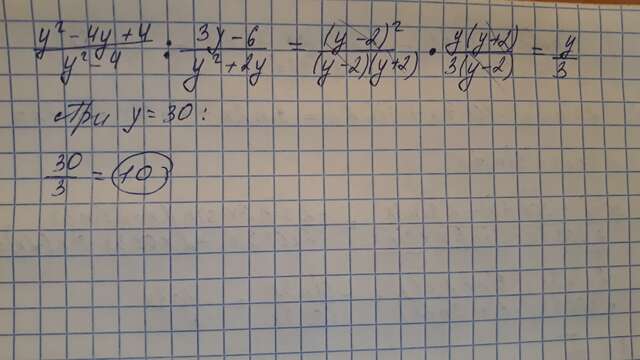 (y² - 4y + 4)/(y² - 4) : (3y - 6)/(y² + 2y) = (y - 2)²/((y - 2)(y + 2)) · y(y + 2)/(3(y - 2)) = y/3
При y = 30 :
30/3 = 10